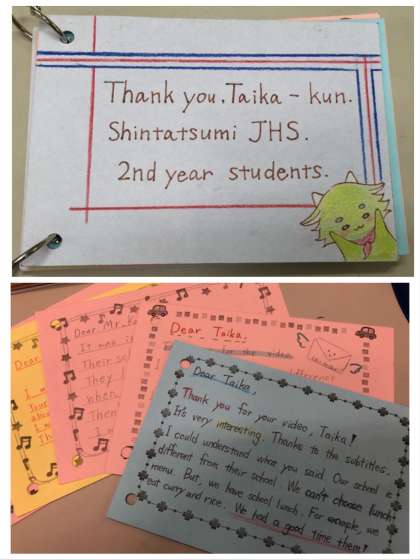 Thank you, Taika - kun.
Shintatsumi JHS.
2nd year students.
Dear
Dear Mr.
It was
Their sc
They
when
Then
Dear Taika,
for the video
difference
Dear Taika,
Thank you for your video, Taika!
It's very interesting. Thanks to the subtitles,
I could understand what you said. Our school is
different from their school. We can't choose lunch
menu. But, we have school lunch. For example, we
eat curry and rice. We had a good time then!